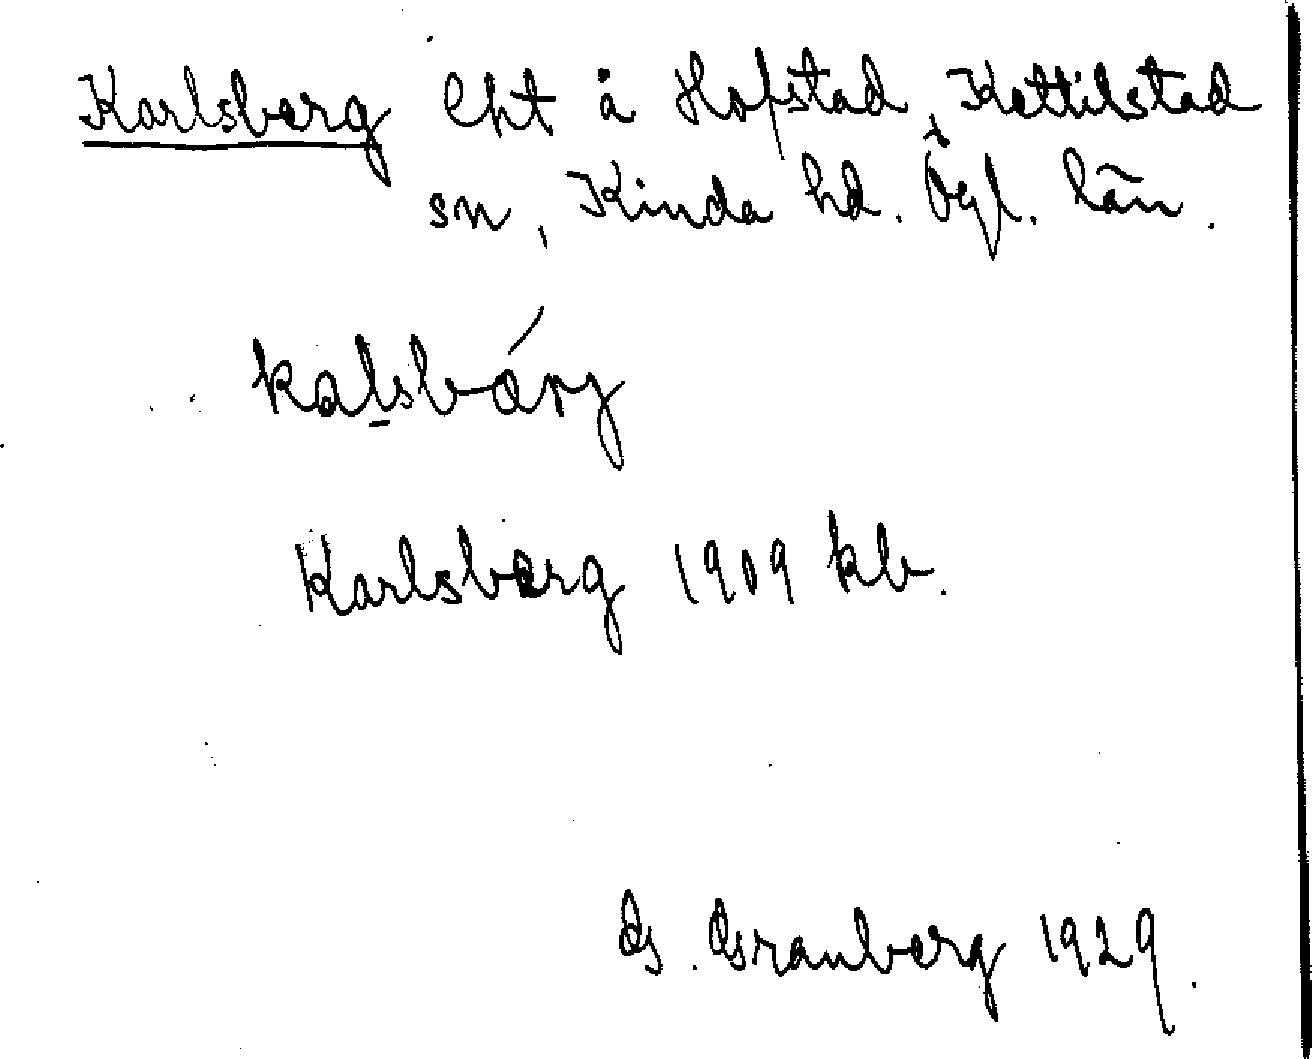 Karlsberg lht å Hofstad, Kettilstad
sn, Kinda hd. Ögl. län.
kalsbárj
Karlsberg 1909 kb.
G. Granberg 1929.